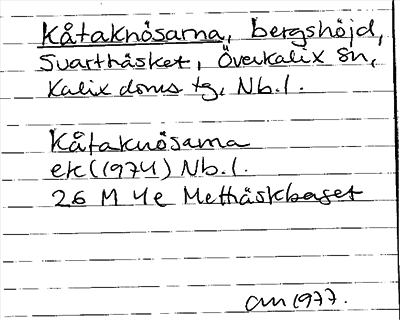 Kåtaknösarna, bergshöjd,
Svartbäsket, Överkalix sn,
Kalix doms tg, Nb.l.
Kåtaknösarna
ek (1974) Nb.l.
26 M 4e
1977.